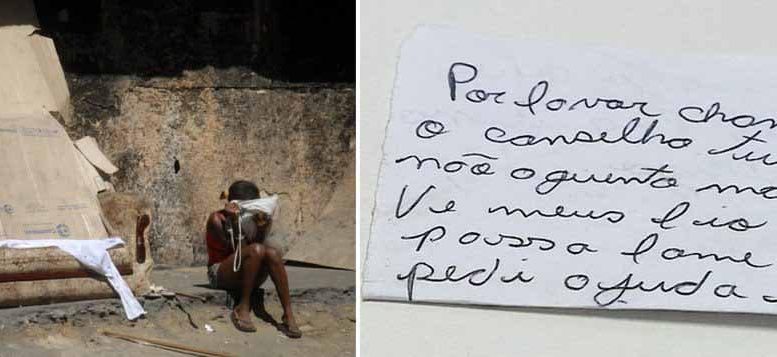 Por favor cham
o conselho tu
não aguento ma
Ve meus fio
passa fome
pedi ajuda